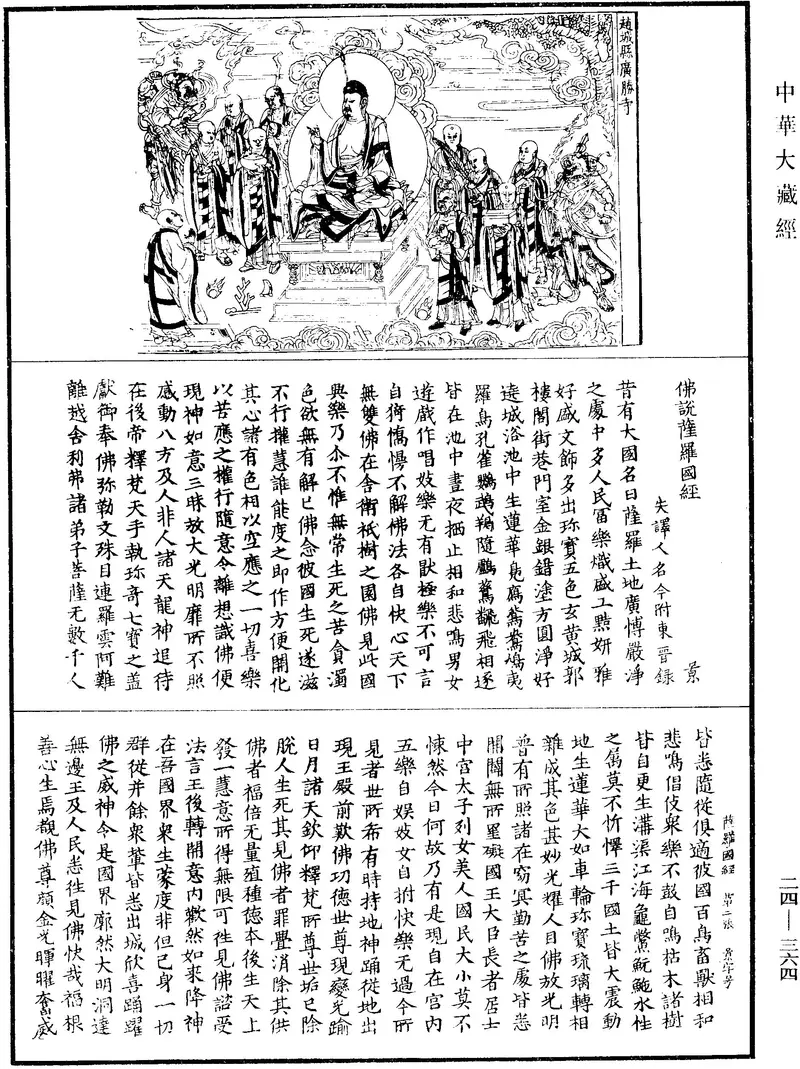 中華大藏經
趙城縣廣勝寺
佛說薩羅國經　景
失譯人名今附東晉錄
昔有大國名曰薩羅土地廣博嚴淨
之處中多人民富樂熾盛工黠妍雅
好盛文飾多出珎寶五色玄黃城郭
樓閣街巷門室金銀錯塗方圓淨好
遶城浴池中生蓮華鳧鴈鴛鴦鳩夷
羅鳥孔雀鸚鵡翔隨鸕鶿飛相逐
皆在池中晝夜栖止相和悲鳴男女
遊戲作唱妓樂无有猒極樂不可言
自猗憍慢不解佛法各自快心天下
無雙佛在舍衛祇樹之園佛見此國
興樂乃尒不惟無常生死之苦貪濁
色欲無有解已佛念彼國生死遂滋
不行權慧誰能度之即作方便開化
其心諸有色相以空應之一切喜樂
以苦應之權行隨意令離想識佛便
現神如意三昧放大光明靡所不照
感動八方及人非人諸天龍神追待
在後帝釋梵天手執珎奇七寶之蓋
獻御奉佛弥勒文殊目連羅雲阿難
離越舍利弗諸弟子菩薩无數千人
薩羅國經　第二張　景字号
皆悉隨從俱適彼國百鳥畜獸相和
悲鳴倡伎衆樂不鼓自鳴枯木諸樹
皆自更生溝渠江海龜鱉魭鮑水性
之屬莫不忻懌三千國土皆大震動
地生蓮華大如車輪珎寶琉璃轉相
雜成其色甚妙光耀人目佛放光明
普有所照諸在窈冥勤苦之處皆悉
開闢無所罣礙國王大臣長者居士
中宮太子列女美人國民大小莫不
悚然今日何故乃有是現自在宮內
五樂自娛妓女自拊快樂無過今所
見者世所希有時持地神踊從地出
現王殿前歎佛功德世尊現變光踰
日月諸天欽仰釋梵所尊世垢已除
脫人生死其見佛者罪疊消除其供
佛者福倍无量殖種德本後生天上
發一慧意所得無限可往見佛諮受
法言王後轉開意內歡然如來降神
在吾國界衆生蒙度非但已身一切
群從并餘衆輩皆悉出城欣喜踊躍
佛之威神令是國界廓然大明洞達
無邊王及人民悉往見佛快哉福根
善心生焉觀佛尊顏金光暉曜奮威
二四—三六四